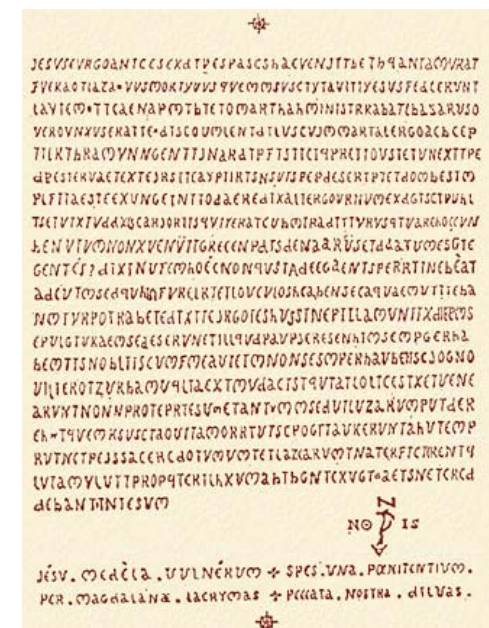 JESVSEVRGOANTCESEXATPESPASCSHAEVENJTTBETHQANTAMVRAT
FVERAOTIAZA•VVSMORTYVVSQVEMMSVSCTYTAVITIYESVSFEACERVNT
LAVIEM•TTCAENAPMTBTETOMARTHAHMINISTRRABATCBAZARUSO
VEROVNXVSERATTE•DTSCOUMLENTDTLUSCVJMMARTALERGOACHCEP
TTLKTHRAMYNNGENTTJNARDTPFTSTTCIQPRETTOVSTETVNEXTTPE
DPESTERVAETEXTEJRSTTCAYPIIRTSNSVTSPEPDESERTPTETDOMBESTM
PLFTTAESTEEXUNGEINTTODAEREDIXALTERGOVRNUMEXDGTSCTPULI
TSETVIXTVDDXGCARJORTTSQVIYERATCUHMTRADTTTVRVSQTVAREHOCCVN
HENVIVMNONXVENVITGRECENPATSDENAARVSETDAATUMESGTE
GENTES?DIXINUTEMHOECNONQUSTADEEGAENTSPERRTINEBEAT
ADCUTMSEDQUHNFVRELRTETLOUCVLOSHCABENSECAQVAEMUTTTEBA
NMTVRPOTRABETEDTXTTEJRGOIESHVSSTNEPTILLAMVNITXDTEPMS
EPVLGTVRAEMSEDESERVNETILLQVDPAVPSERESENHTMSEMPGERHA
BEMTTSNOBLITISCVMFMEAVIETMONONSESMPERHAVBENSCJOGNO
VILIEROTZVRBAMVQLTAEXTMVDACTSTQVTATLOLTCESTXETVENE
ARVNTNONNPROTEPRTESUMETANTVMMSEDUTLUZARVMPUTDER
EH•TQVEMKSUSCTAOVITAMORRTUTSCPOGTTAVKERVNTAHVTEMP
RVTNCTPEJSSACERCDOTVMVMTETLAZARVMTNATERFTCTRENTQ
LVTAMYLUTTPROPQTERILHXVMAHTBGNTCXVGT•AETSNETCRED
DEBANTINIESVM
NO IS
JÉSV. MEDÈLA. VULNÉRUM ✢ SPES. VNA. PŒNITENTIVM.
PER. MAGDALANÆ. LACRYMAS ✢ PECCATA. NOSTRA. DILUAS.